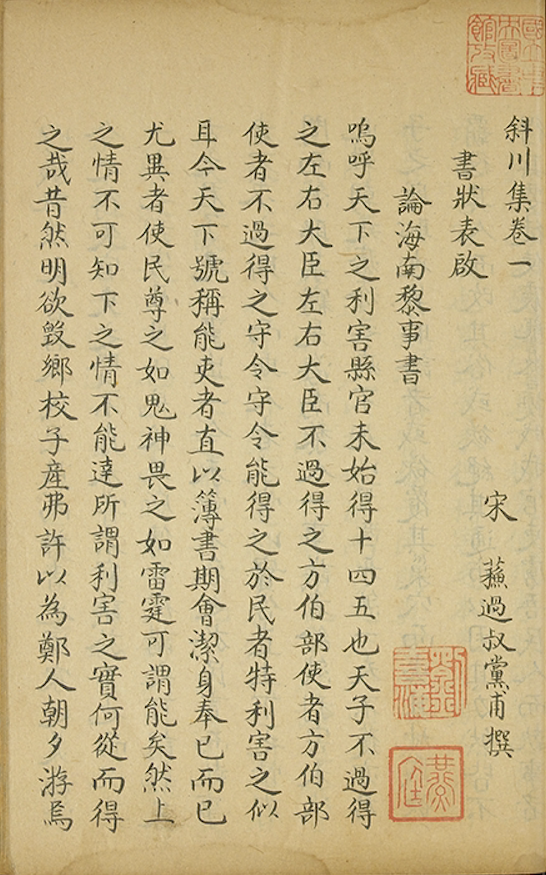 斜川集卷一
宋 蘓過叔黨甫撰
書狀表啟
論海南黎事書
嗚呼天下之利害縣官未始得十四五也天子不過得
之左右大臣左右大臣不過得之方伯部使者方伯部
使者不過得之守令守令能得之於民者特利害之似
耳今天下號稱能吏者直以簿書期會潔身奉已而已
尤異者使民尊之如鬼神畏之如雷霆可謂能矣然上
之情不可知下之情不能達所謂利害之實何從而得
之哉昔然明欲毀鄉校子產弗許以為鄭人朝夕游焉